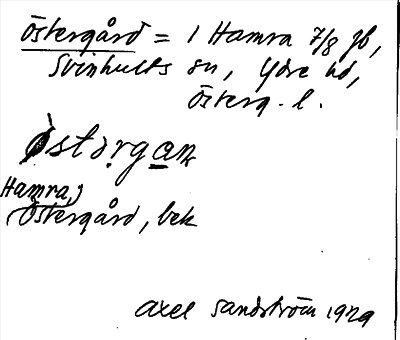 Östergård = 1 Hamra 7/8 jb,
Svinhults sn, Ydre hd,
Österg. l.
Östərgan
Hamra,
Östergård, bek
Axel Sandström 1929